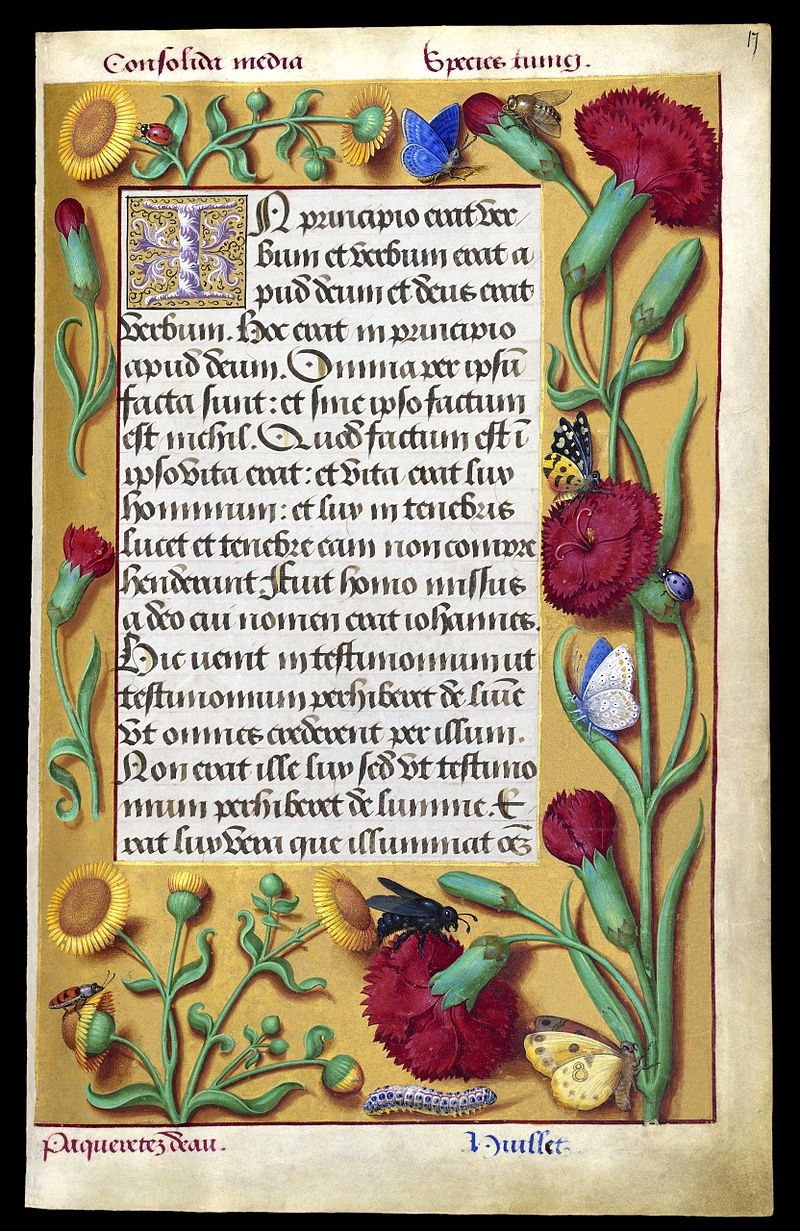 17
Consolida media Species tunici.
IN principio erat ver
bum et verbum erat a
pud deum et deus erat
verbum. Hoc erat in principio
apud deum. Omnia per ipsū
facta sunt: et sine ipso factum
est nichil. Quod factum est ī
ipso vita erat: et vita erat lux
hominum: et lux in tenebris
lucet et tenebre eam non compre
henderunt. Fuit homo missus
a deo cui nomen erat iohannes.
Hic venit in testimonium ut
testimonium perhiberet de lumīe
Vt omnes crederent per illum.
Non erat ille lux sed vt testimo
nium perhiberet de lumine. E
rat lux vera que illuminat oēz
Paqueretez deau. Huillet